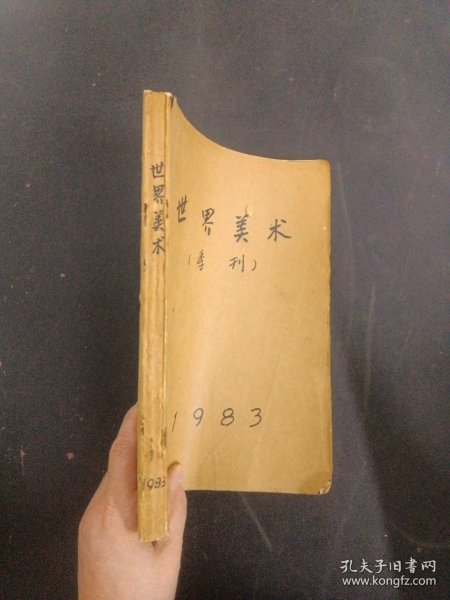 世界美术
1983
世界美术
(季刊)
1983
孔夫子旧书网
www.kongfz.com